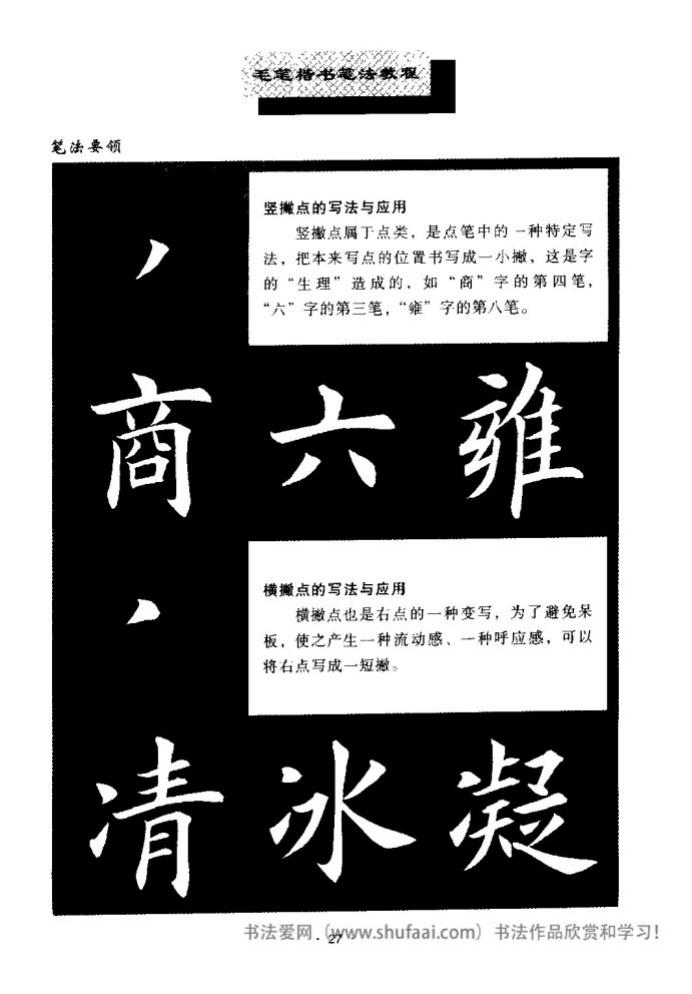 毛笔楷书笔法教程
笔法要领
竖撇点的写法与应用
竖撇点属于点类，是点笔中的一种特定写
法，把本来写点的位置书写成一小撇，这是字
的“生理”造成的，如“商”字的第四笔，
“六”字的第三笔，“雍”字的第八笔。
商 六 雍
横撇点的写法与应用
横撇点也是右点的一种变写，为了避免呆
板，使之产生一种流动感、一种呼应感，可以
将右点写成一短撇。
凊 冰 凝
· 27
书法爱网（www.shufaai.com）书法作品欣赏和学习！